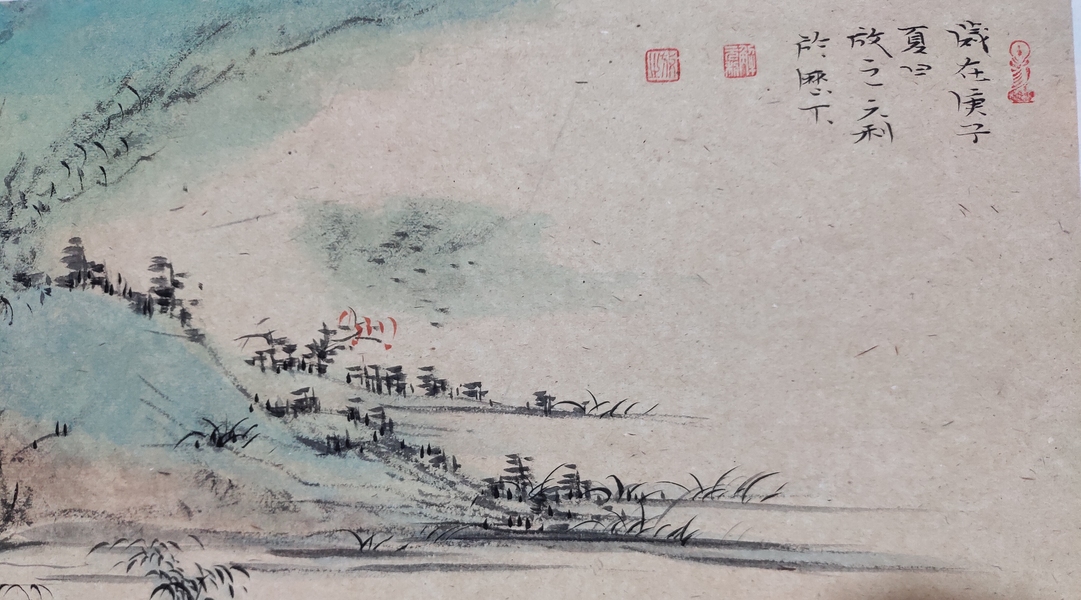 歲在庚子
夏日
放之元利
於歷下